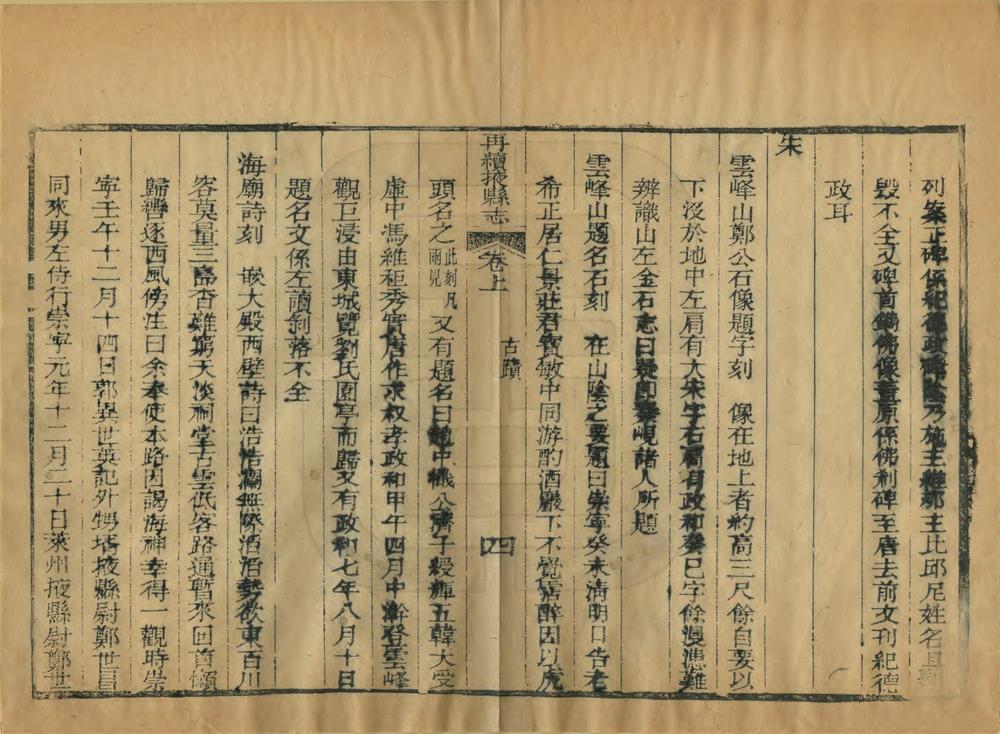 列案正碑係紀德政碑陰乃施主維那主比邱尼姓名且斷
毀不全又碑首鐫佛像蓋原係佛刹碑至唐去前文刊紀德
政耳
朱
雲峰山鄭公石像題字刻　像在地上者約高三尺餘自要以
下沒於地中左肩有大宋字石肩有政和癸巳字餘漫漶難
辨識山左金石志曰疑即秦峴諸人所題
雲峰山題名石刻　在山陰之要題曰崇寧癸未淸明日告老
希正居仁景莊君寶敏中同游酌酒巖下不覺霑醉因以虎
再續掖縣志
卷上
古蹟
四
頭名之此刻凡兩見又有題名曰趙中機公濟子穀輝五韓大受
虛中馮維秬秀實唐作求叔孝政和甲午四月中澣登雲峰
觀巨浸由東城覽劉氏園亭而歸又有政和七年八月十日
題名文係左讀剝落不全
海廟詩刻　嵌大殿西壁詩曰浩浩瀾無際滔滔勢欲東百川
容莫量三島杳難窮天淡祠堂古雲低客路通暫來回首懶
歸轡逐西風傍注曰余奉使本路因謁海神幸得一觀時崇
寧壬午十二月十四日郭異世英記外甥壻掖縣尉鄭世昌
同來男左侍行崇寧元年十二月二十日萊州掖縣尉鄭世